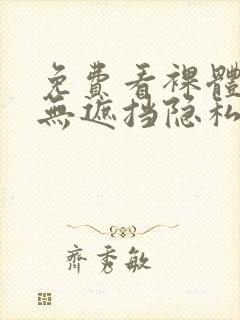 免費看裸體
無遮挡隐私
齊秀敏